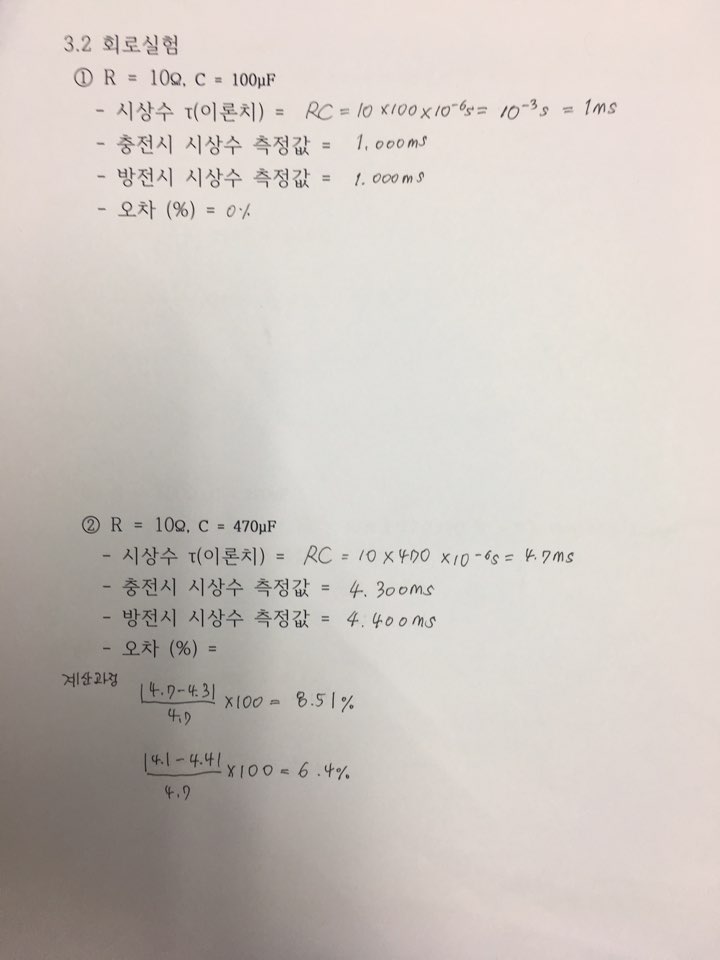 3.2 회로실험
① R = 10Ω, C = 100μF
- 시상수 τ(이론치) = RC = 10 × 100 × 10⁻⁶s = 10⁻³s = 1ms
- 충전시 시상수 측정값 = 1.000ms
- 방전시 시상수 측정값 = 1.000ms
- 오차 (%) = 0%
② R = 10Ω, C = 470μF
- 시상수 τ(이론치) = RC = 10 × 470 × 10⁻⁶s = 4.7ms
- 충전시 시상수 측정값 = 4.300ms
- 방전시 시상수 측정값 = 4.400ms
- 오차 (%) =
계산과정
|4.7-4.3|
/4.7 ×100 = 8.51%
|4.1-4.4|
/4.7 ×100 = 6.4%